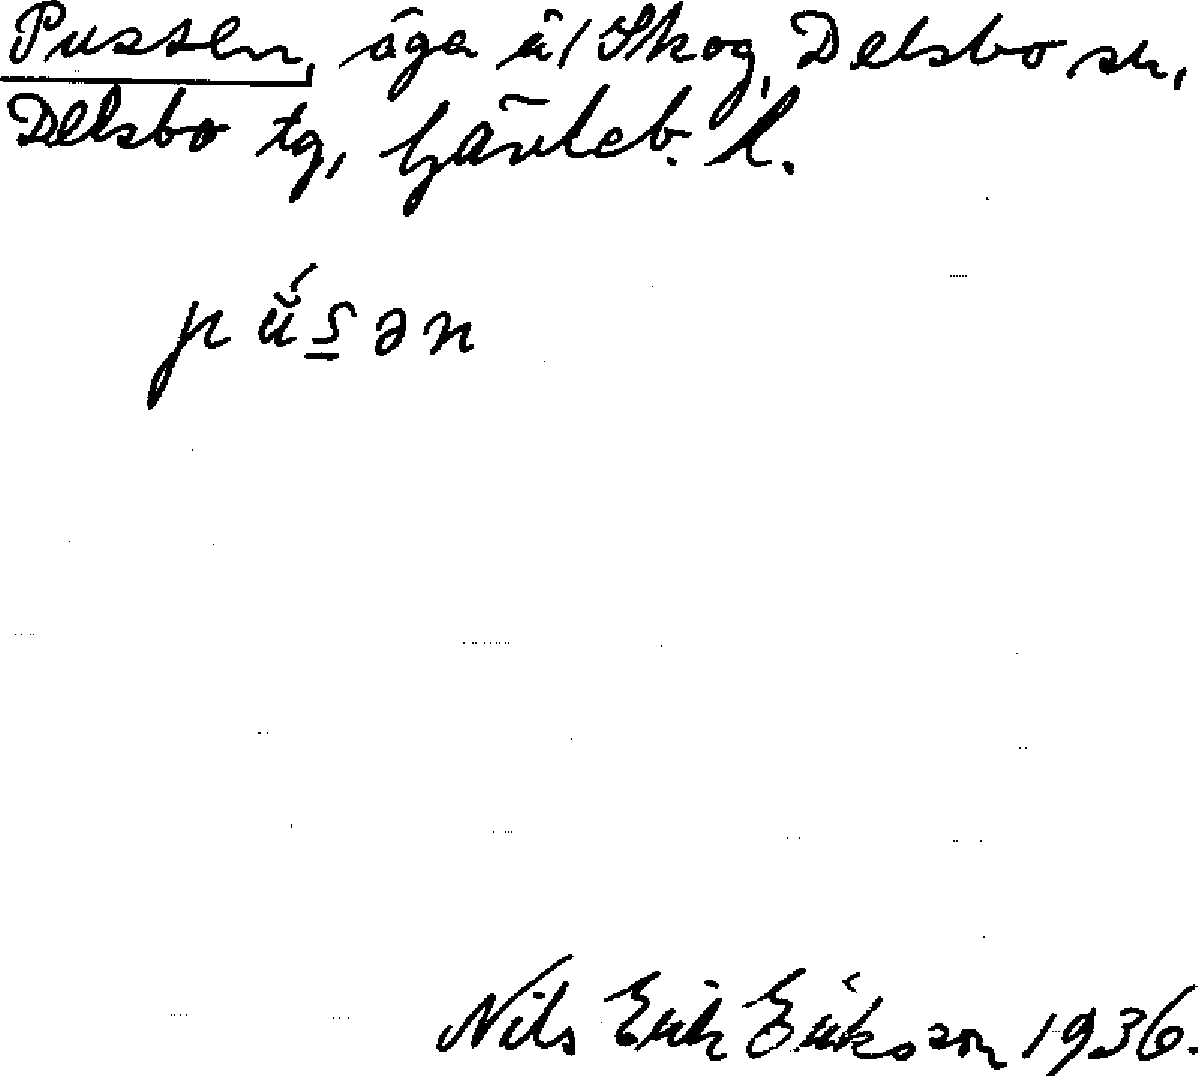 Pussen, äga å/ Skog, Delsbo sn,
Delsbo tg, Gävleb. l.
pŭ́s̲ən
Nils Erik Eriksson 1936.